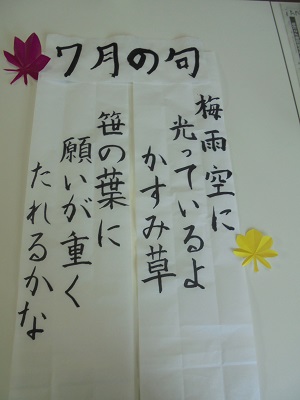 7月の句
梅雨空に
光っているよ
かすみ草
笹の葉に
願いが重く
たれるかな